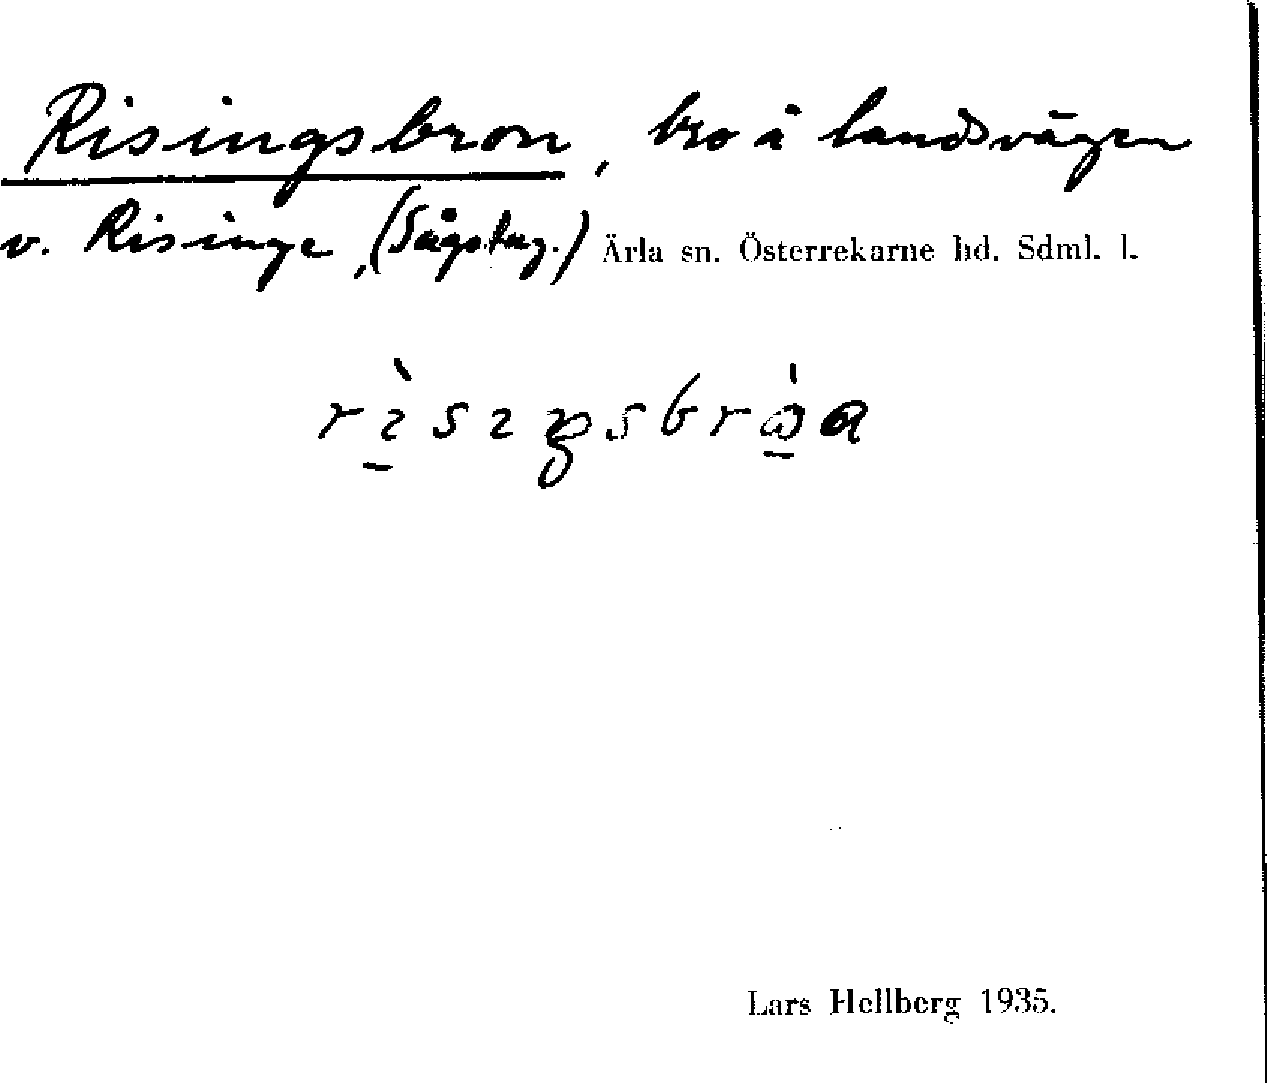 Risingsbron, bro å landsvägen
v. Risinge, (Sågstug.) Ärla sn. Österrekarne hd. Sdml. l.
Lars Hellberg 1935.